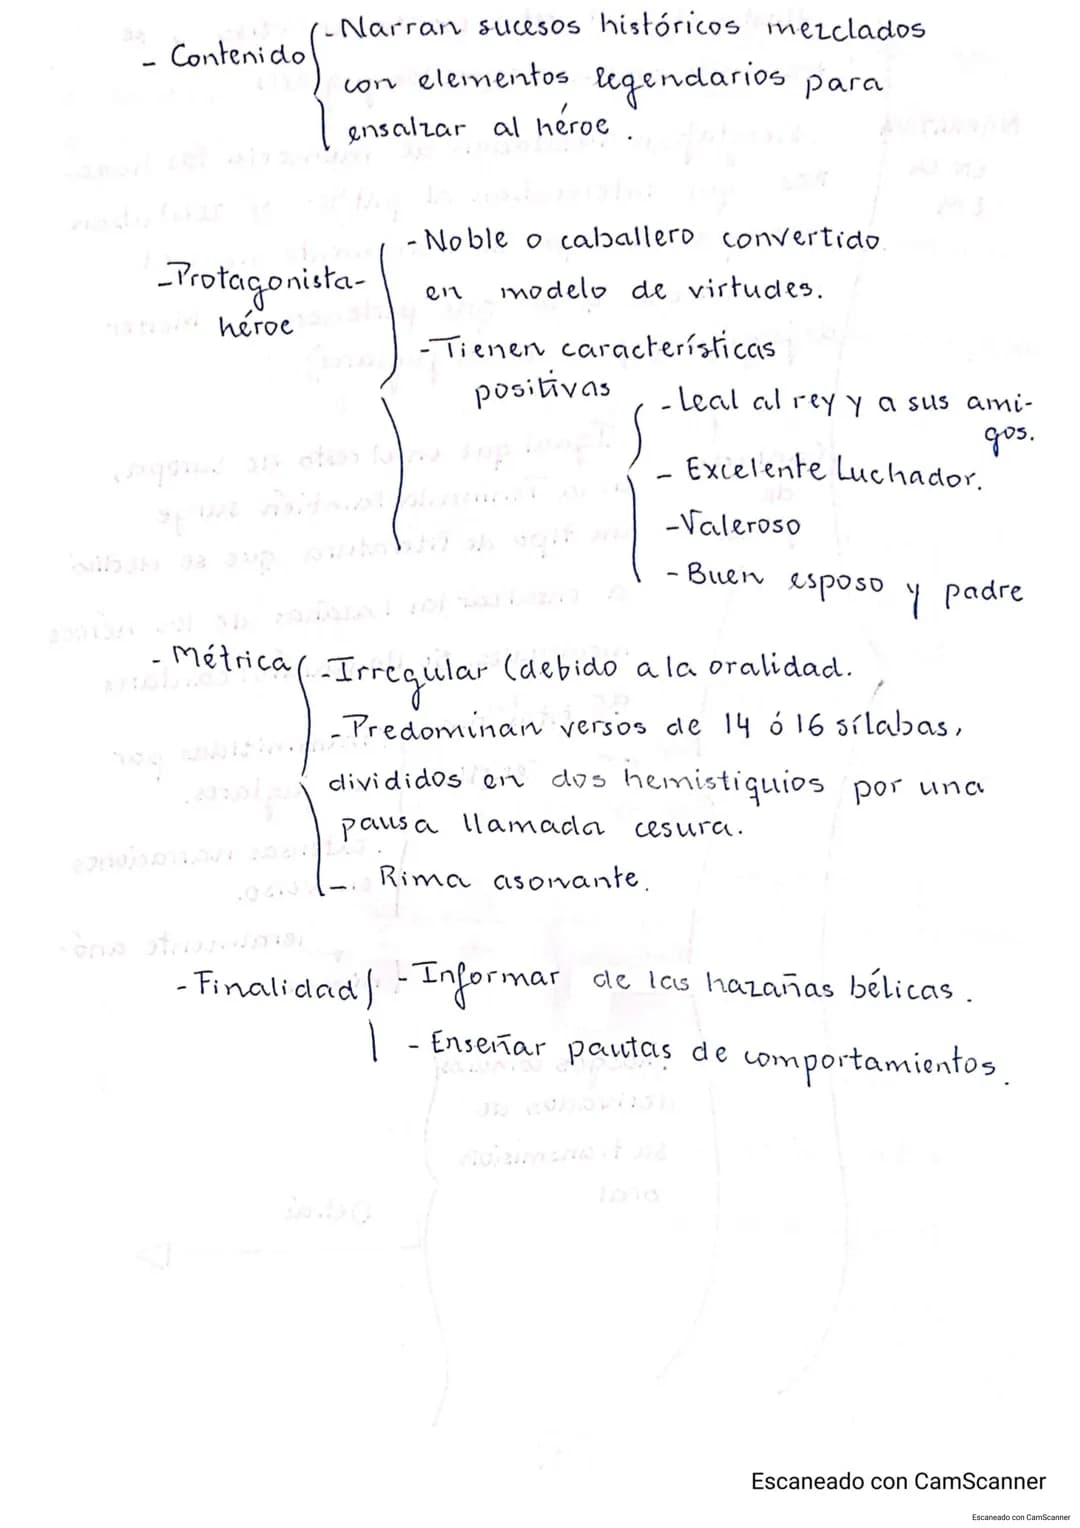 - Contenido
- Narran sucesos históricos mezclados
con elementos legendarios para
ensalzar al héroe.
- Protagonista-
héroe
- Noble o caballero convertido
en modelo de virtudes.
- Tienen características
positivas
- Leal al rey y a sus ami-
gos.
- Excelente Luchador.
- Valeroso
- Buen esposo y padre
- Métrica
- Irregular (debido a la oralidad.
- Predominan versos de 14 ó 16 sílabas,
divididos en dos hemistiquios por una
pausa llamada cesura.
- Rima asonante.
- Finalidad
- Informar de las hazañas bélicas.
- Enseñar pautas de comportamientos.
Escaneado con CamScanner
Escaneado con CamScanner